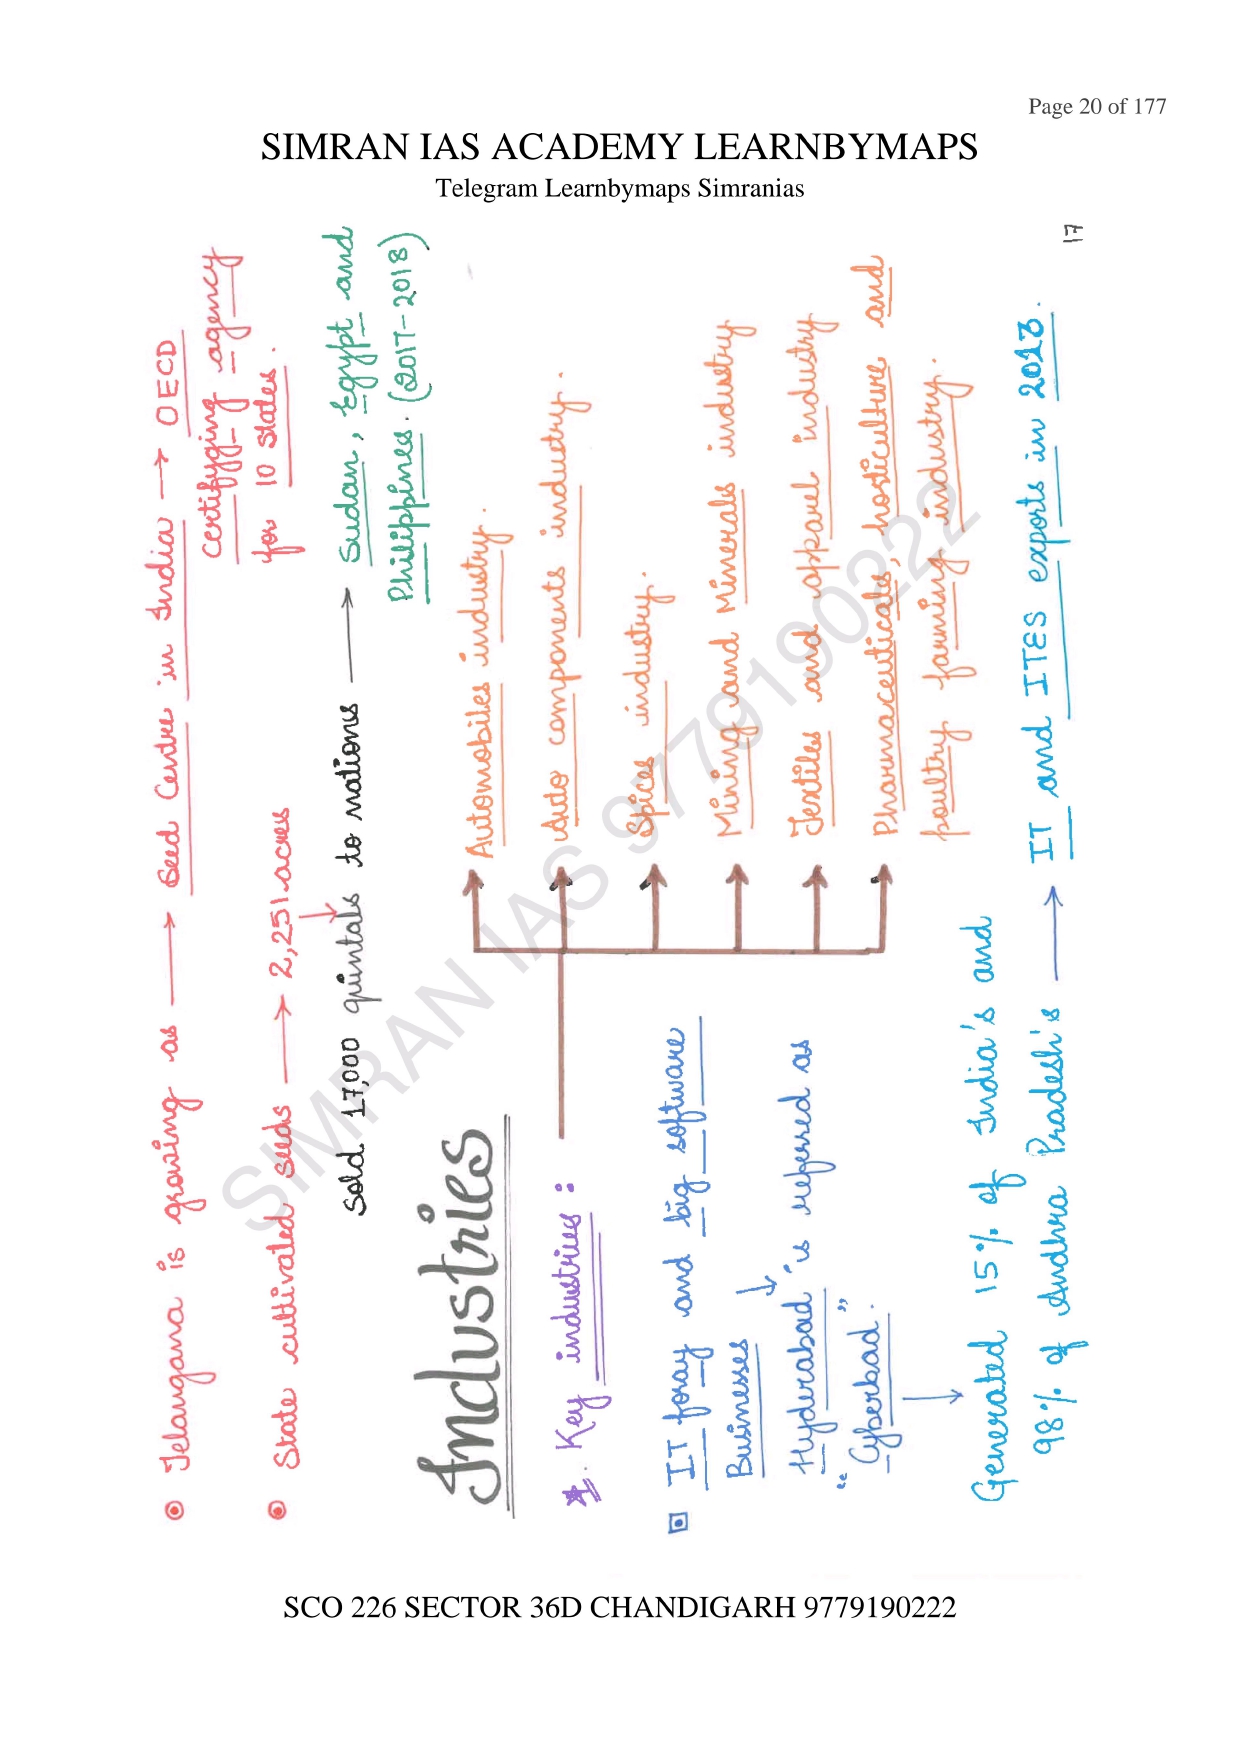 Page 20 of 177
SIMRAN IAS ACADEMY LEARNBYMAPS
Telegram Learnbymaps Simranias
17
• Telangana is growing as → Seed Centre in India → OECD
certifying agency
for 10 states.
• State cultivated seeds → 2,251 acres
↓
Sold 17,000 quintals to nations → Sudan, Egypt and
Philippines. (2017-2018)
Industries
* Key industries :
Automobiles industry.
Auto components industry.
Spices industry.
Mining and Minerals industry
Textiles and apparel industry
Pharmaceuticals, horticulture and
poultry farming industry.
IT foray and big software
Businesses
↓
Hyderabad is referred as
"Cyberbad".
↓
Generated 15% of India's and
98% of Andhra Pradesh's → IT and ITES exports in 2013.
SIMRAN IAS 9779190222
SCO 226 SECTOR 36D CHANDIGARH 9779190222